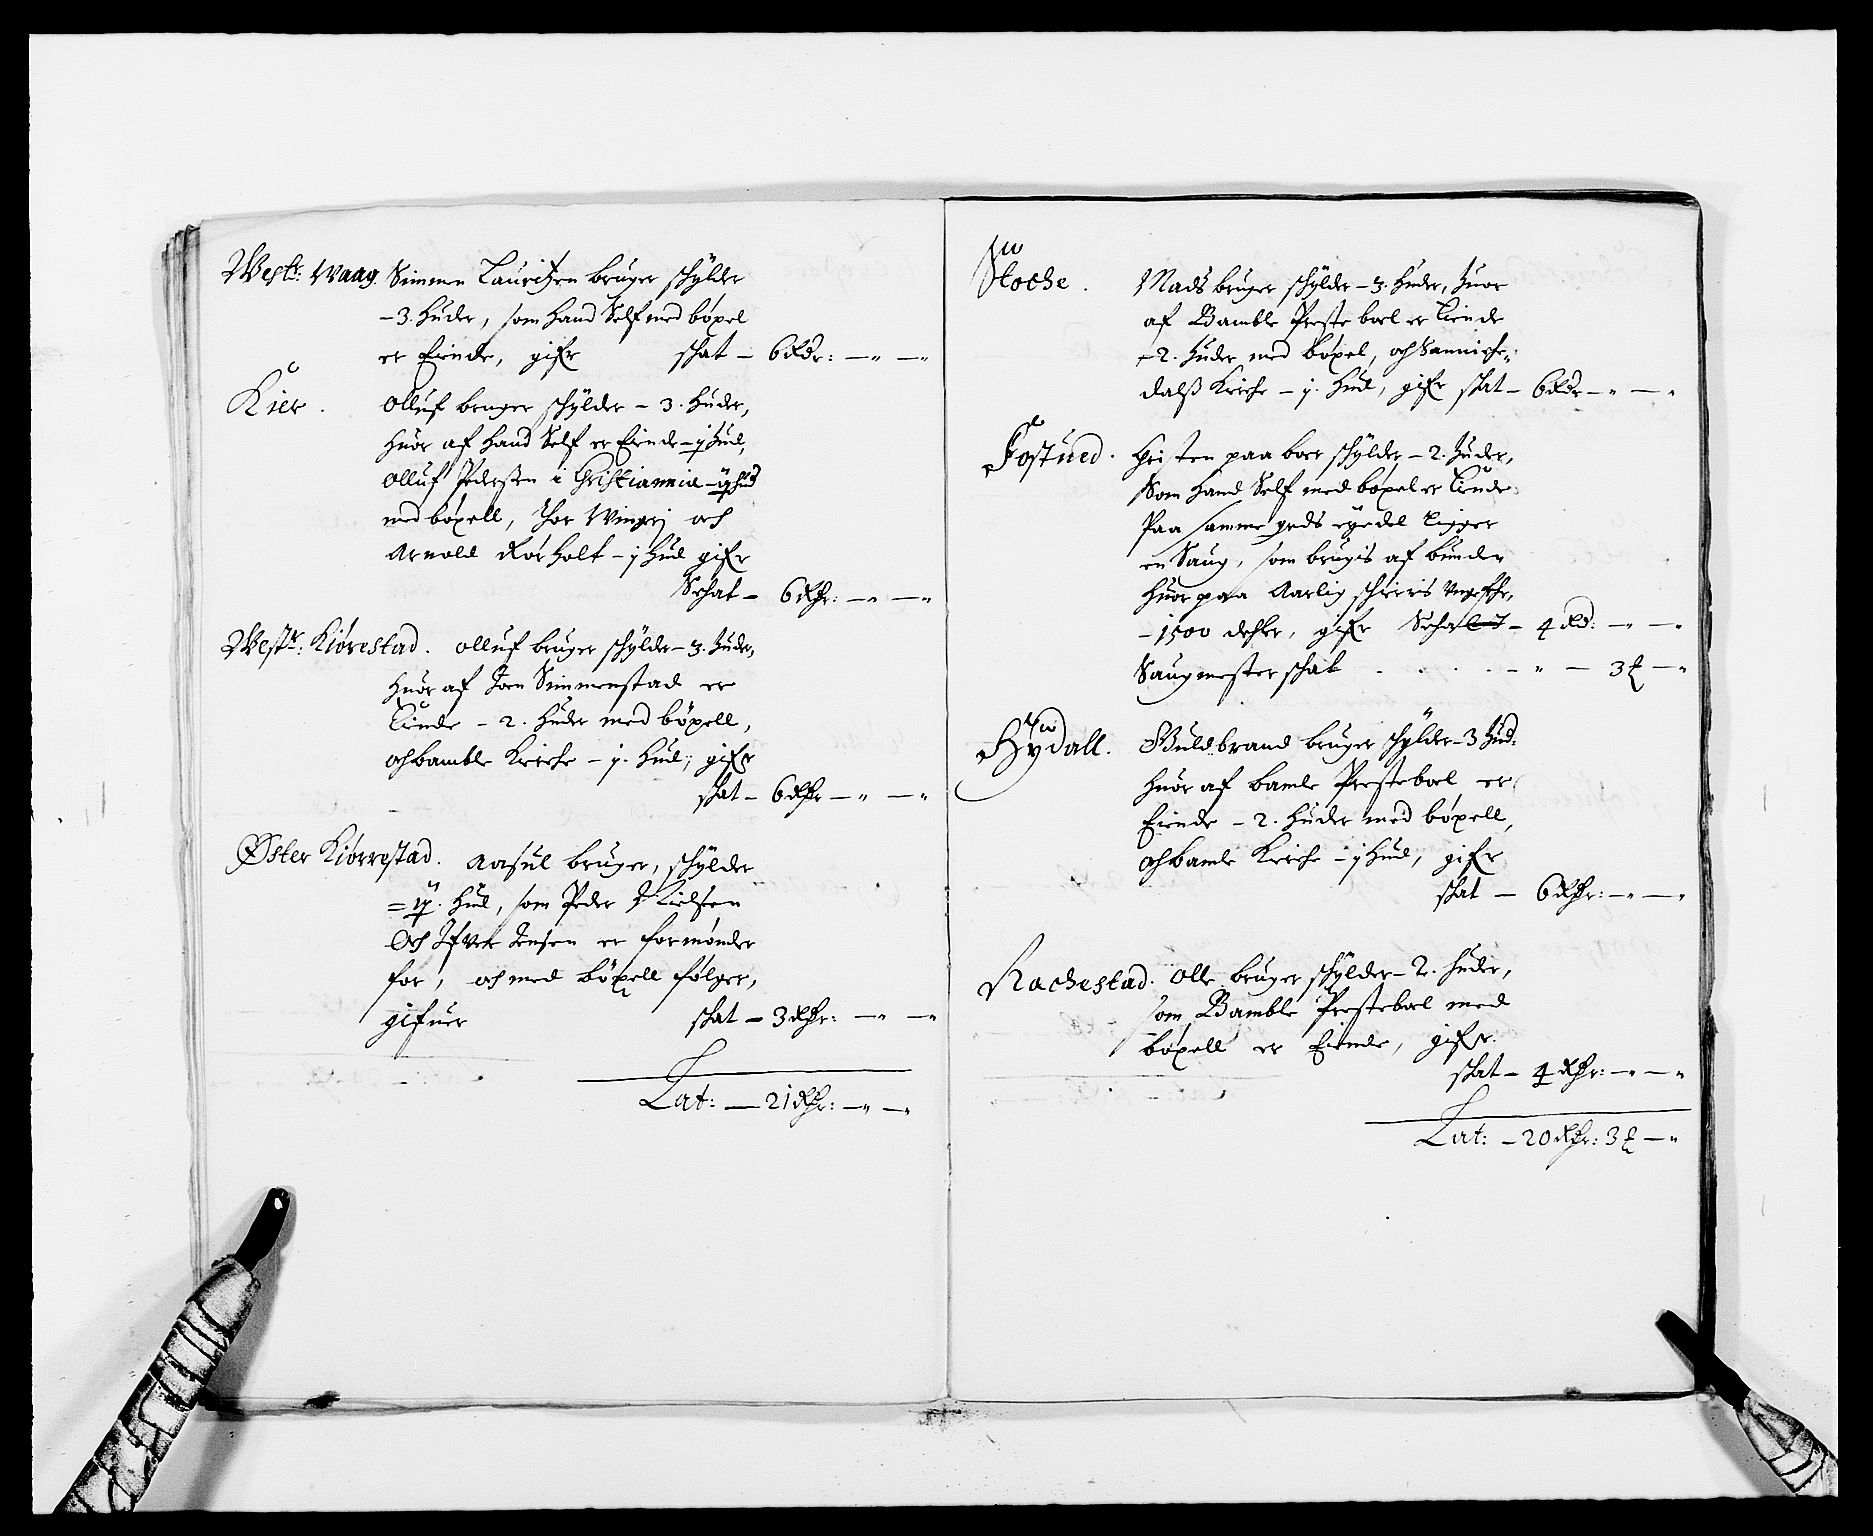 Westr: Waag. Simmen Lauritzen bruger schylder
- 3. huder, som hand Self med böxel
er Eiende, gifr schat - 6 Rdr: - " - "
Kier. Olluf bruger schylder - 3. huder,
huor af hand Self er Eiende - j hud,
Olluf Pedersen i Christiannia - hud
med böxell, Thor och
Arnold Rörholt - j hud gifr
Schat - 6 Rdr: - " - "
Westr: Kiörestad. olluf bruger schylder - 3. huder,
huor af Joen Simmenstad er
Eiende - 2. huder med böxell,
och bamble Kirche - j. hud; gifr
schat - 6 Rdr - " - "
Øster Kiörrestad. Aasul bruger, schylder
hud, som Peder Nielsen
Och Ifver Jensen er formönder
for, och med böxell fölger,
gifuer schat - 3 Rdr: - " - "
Lat: - 21 Rdr: - " - "
Stoche. Mads bruger schylder - 3. huder, huor
af Bamble Preste boel er Eiende
- 2. huder med böxel, och Sannicke-
dalß Kirche - j. hud, gifr schat - 6 Rdr - " - "
Fostued. Christen paa boer schylder - 2. huder,
Som hand Self med böxel er Eiende:
Paa samme grds eyedel ligger
en Saug, som brugis af bunden
huor paa Aarlig schieris
- 1500 dehler, gifr Schat - 4 Rd: - " - "
Saugmester schat . . . . - " - 3 ₰ - "
Hydall. Guldbrand bruger schylder - 3 hud:
huor af bamle Presteboel er
Eiende - 2. huder med böxell,
och bamle Kirche - j hud, gifr
schat - 6 Rdr: - " - "
Rachestad. Olle bruger schylder - 2. huder,
som Bamble Presteboel med
böxell er Eiende, gifr.
schat - 4 Rdr: - " - "
Lat: - 20 Rdr: 3 ₰ - "